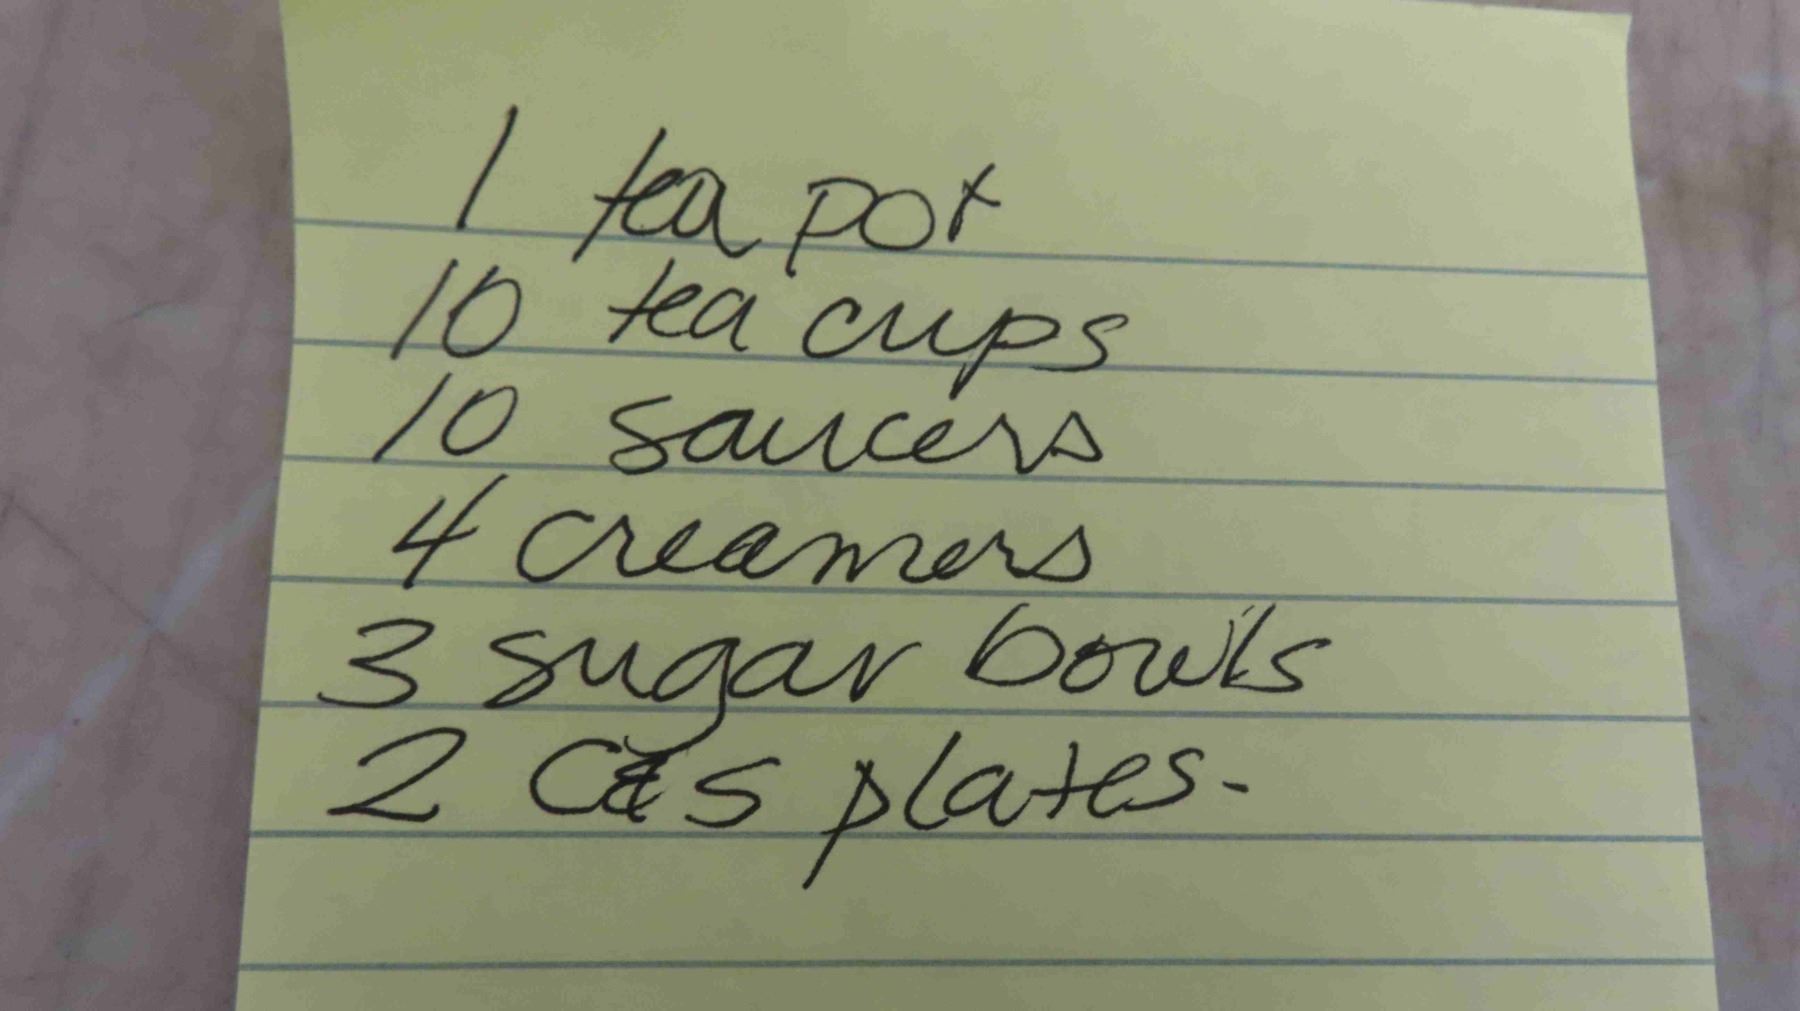 1 tea pot
10 tea cups
10 saucers
4 creamers
3 sugar bowls
2 C&S plates.